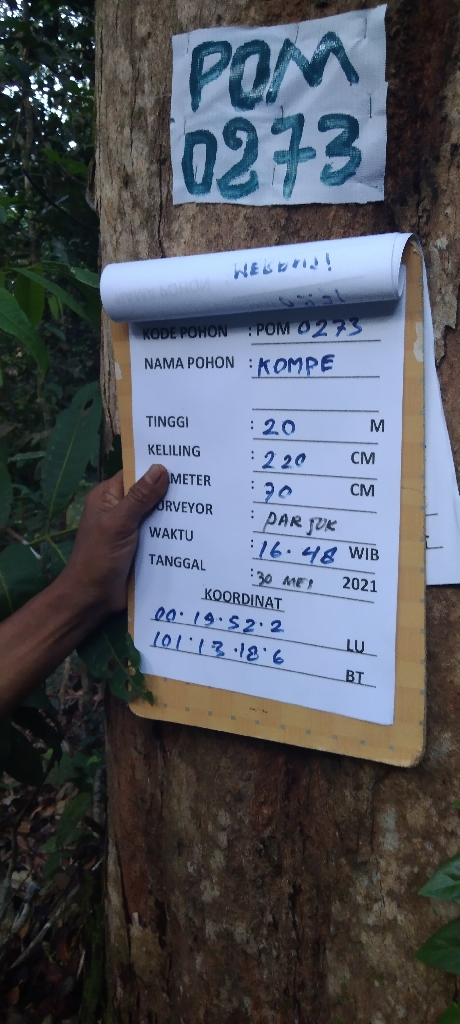 POM
0273
KODE POHON : POM 0273
NAMA POHON : KOMPE
TINGGI : 20 M
KELILING : 220 CM
AMETER : 70 CM
URVEYOR : PARJUK
WAKTU : 16.48 WIB
TANGGAL : 30 MEI 2021
KOORDINAT
00.19.52.2 LU
101.13.18.6 BT